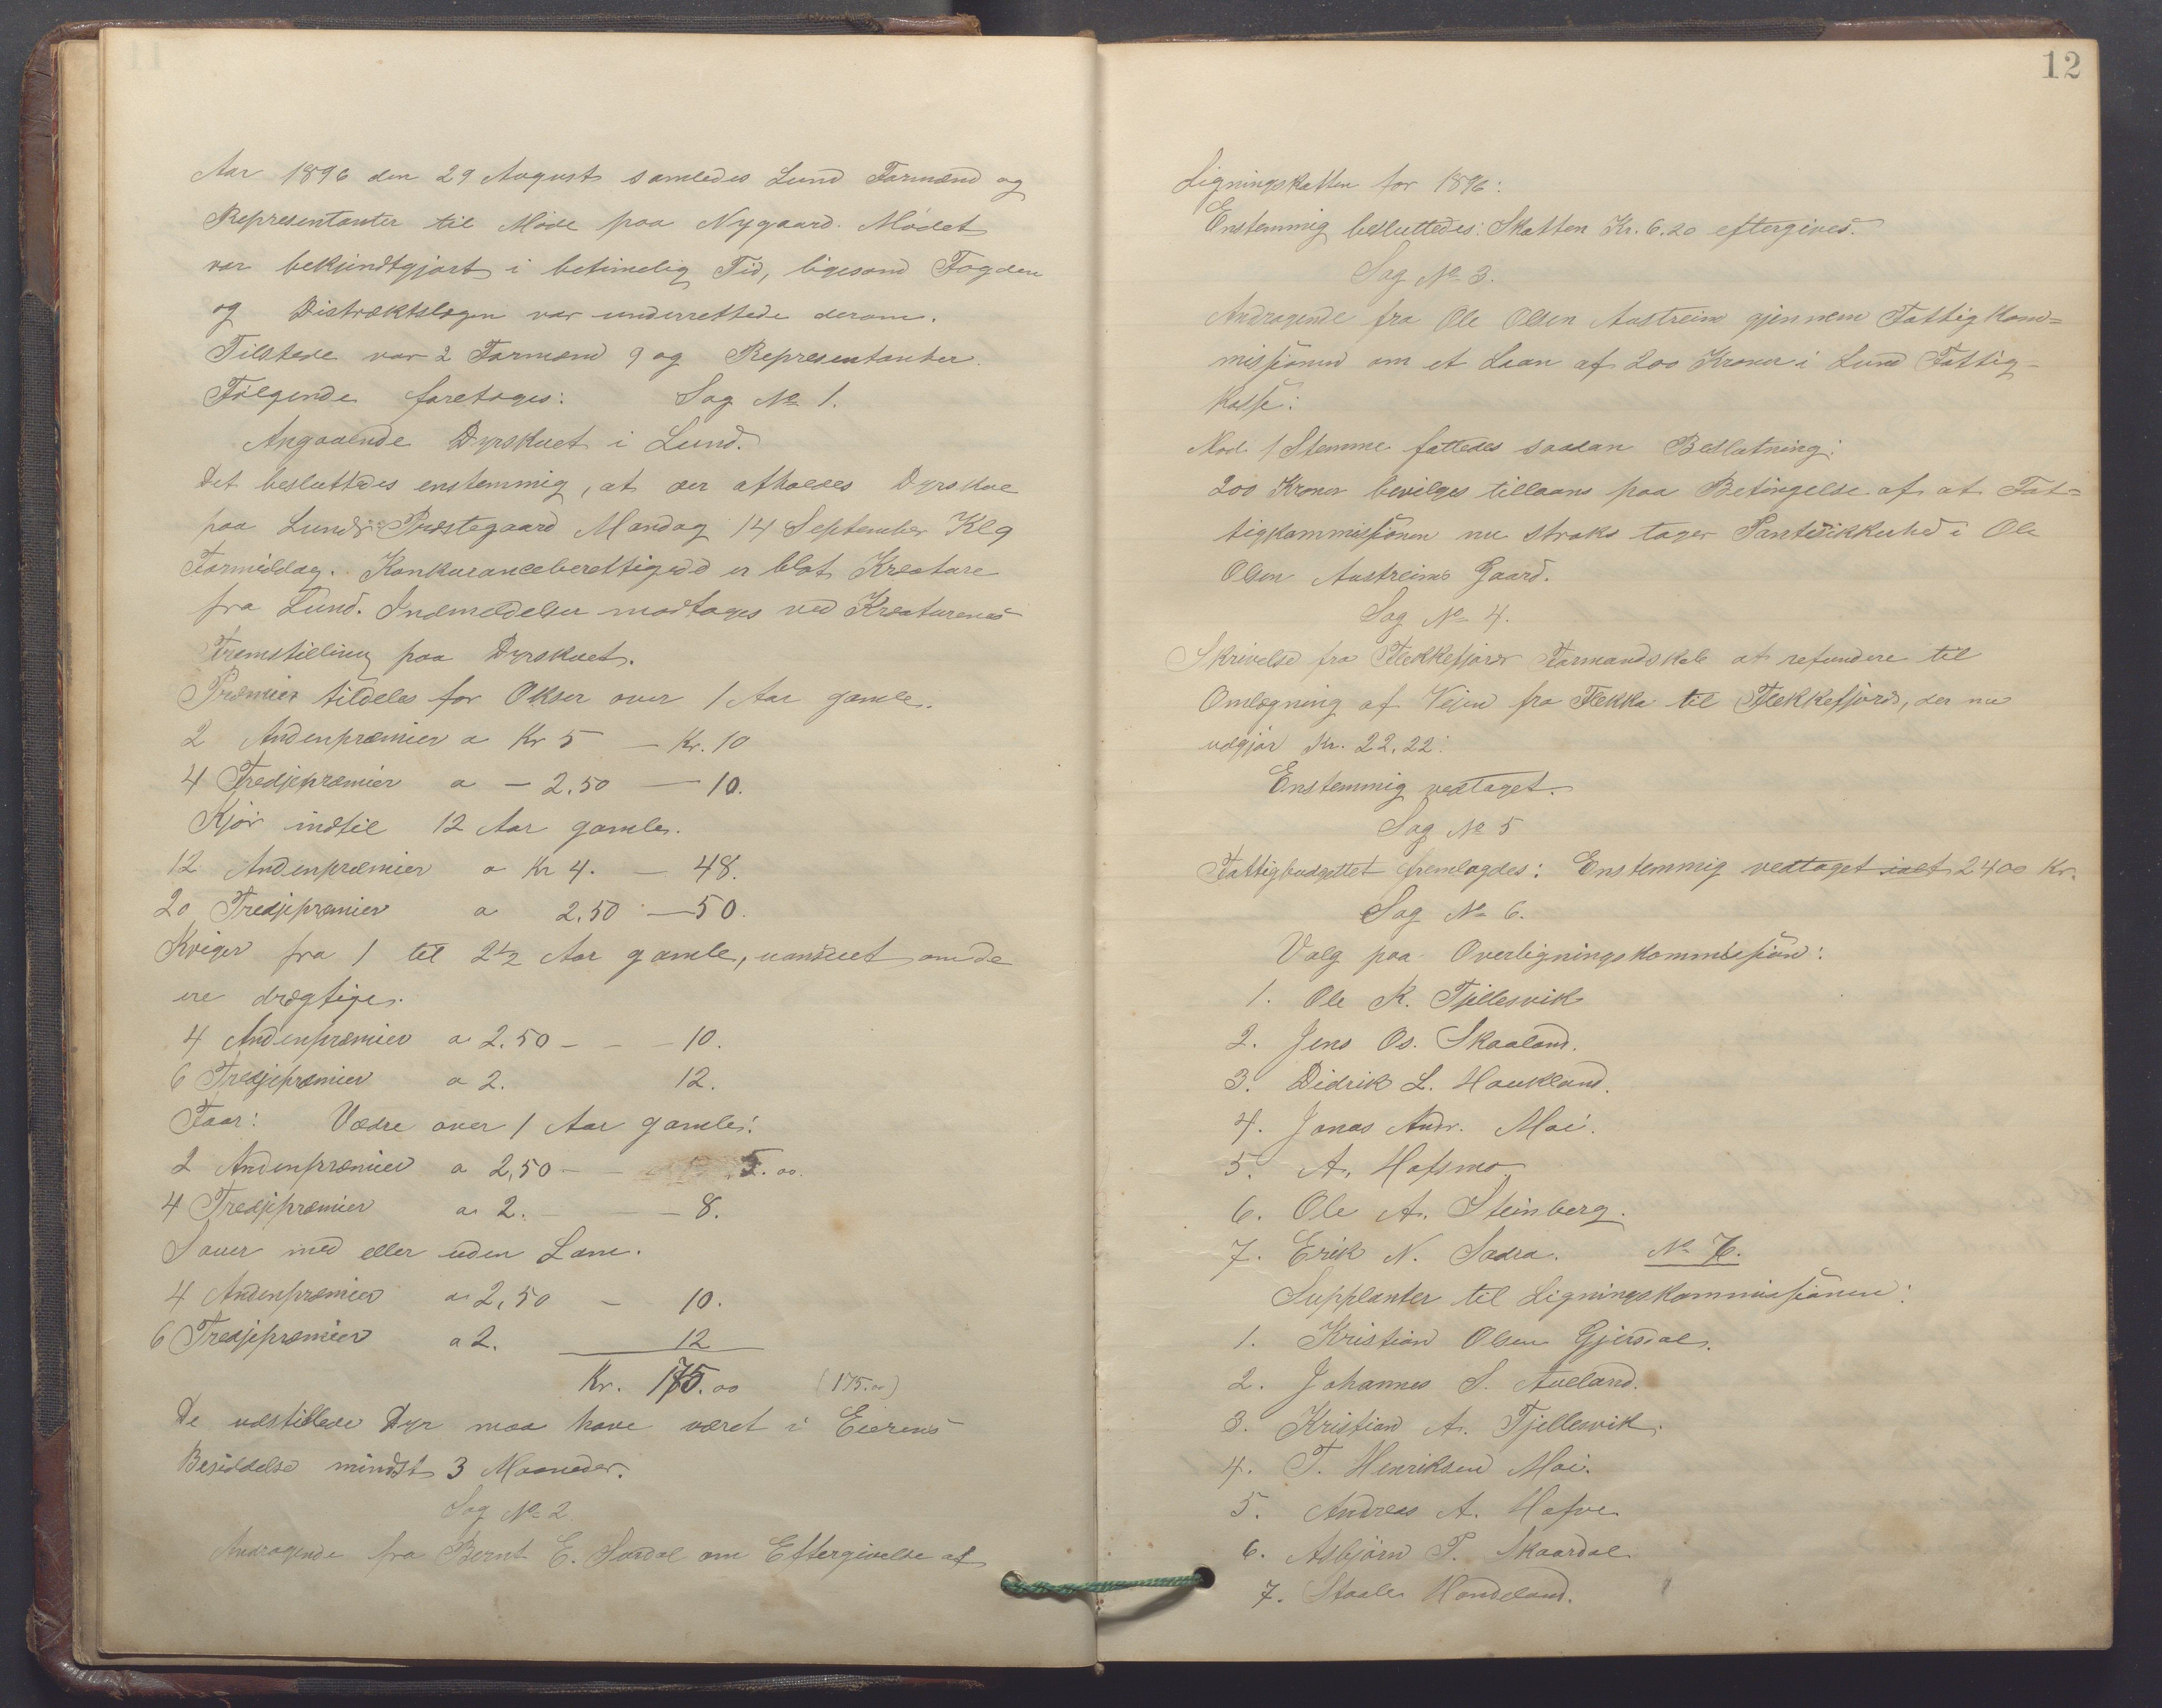 Aar 1896 den 29 August samledes Lund Formænd og
Representanter til Møde paa Nygaard. Mødet
var bekjendtgjort i betimelig Tid, ligesom Fogden
og Distriktslægen var underrettede derom.
Tilstede var 2 Formænd 9 og Representanter.
Følgende foretoges: Sag № 1.
Angaaende Dyrskuet i Lund.
Det besluttedes enstemmig, at der afholdes Dyrskue
paa Lunds Præstegaard Mandag 14 September Kl 9
Formiddag. Konkuranceberettigede er blot Kreature
fra Lund. Indmeldelser modtages ved Kreaturenes
Fremstilling paa Dyrskuet.
Præmier tildeles for Okser over 1 Aar gamle.
2 Andenpræmier a Kr 5 — Kr. 10
4 Tredjepræmier a — 2.50 — 10.
Kjør indtil 12 Aar gamle.
12 Andenpræmier a Kr 4. — 48.
20 Tredjepræmier a 2.50 — 50.
Kviger fra 1 til 2½ Aar gamle, uanseet om de
ere drægtige.
4 Andenpræmier a 2.50 - - - 10.
6 Tredjepræmier a 2. 12.
Faar: Vædre over 1 Aar gamle:
2 Andenpræmier a 2,50 - - 5.00.
4 Tredjepræmier a 2. - - - 8.
Sauer med eller uden Lam.
4 Andenpræmier a 2,50 - 10.
6 Tredjepræmier a 2. 12
Kr. 175.00 (175.00)
De udstillede Dyr maa have været i Eierens
Besiddelse mindst 3 Maaneder.
Sag № 2.
Andragende fra Bernt E. Surdal om Eftergivelse af
12
Ligningskatten for 1896:
Enstemmig besluttedes: Skatten Kr. 6.20 eftergives.
Sag № 3.
Andragende fra Ole Olsen Austreim gjennem Fattigkom=
missionen om et Laan af 200 Kroner i Lund Fattig-
kasse:
Mod 1 Stemme fattedes saadan Beslutning:
200 Kroner bevilges tillaans paa Betingelse af at Fat=
tigkommissionen nu straks tager Pantesikkerhed i Ole
Olsen Austreims Gaard.
Sag № 4.
Skrivelse fra Flekkefjords Formandskab at refundere til
Omlægning af Vejen fra Flekke til Flekkefjord, der nu
udgjør Kr. 22,22:
Enstemmig vedtaget.
Sag № 5
Fattigbudgettet fremlagdes: Enstemmig vedtaget ialt 2400 Kr.
Sag № 6.
Valg paa Overligningskommission:
1. Ole K. Tjellesvik
2. Jens Os. Skaaland.
3. Didrik L. Haukland.
4. Jonas Andr. Moi.
5. A. Hafsmo
6. Ole A. Steinberg.
7. Erik N. Sadra. № 7.
Supplanter til Ligningskommissionen:
1. Kristian Olsen Gjersdal.
2. Johannes S. Aueland.
3. Kristian A. Tjellesvik.
4. T. Henriksen Moi.
5. Andreas A. Hafve
6. Asbjørn T. Skaardal
7. Staale Handeland.